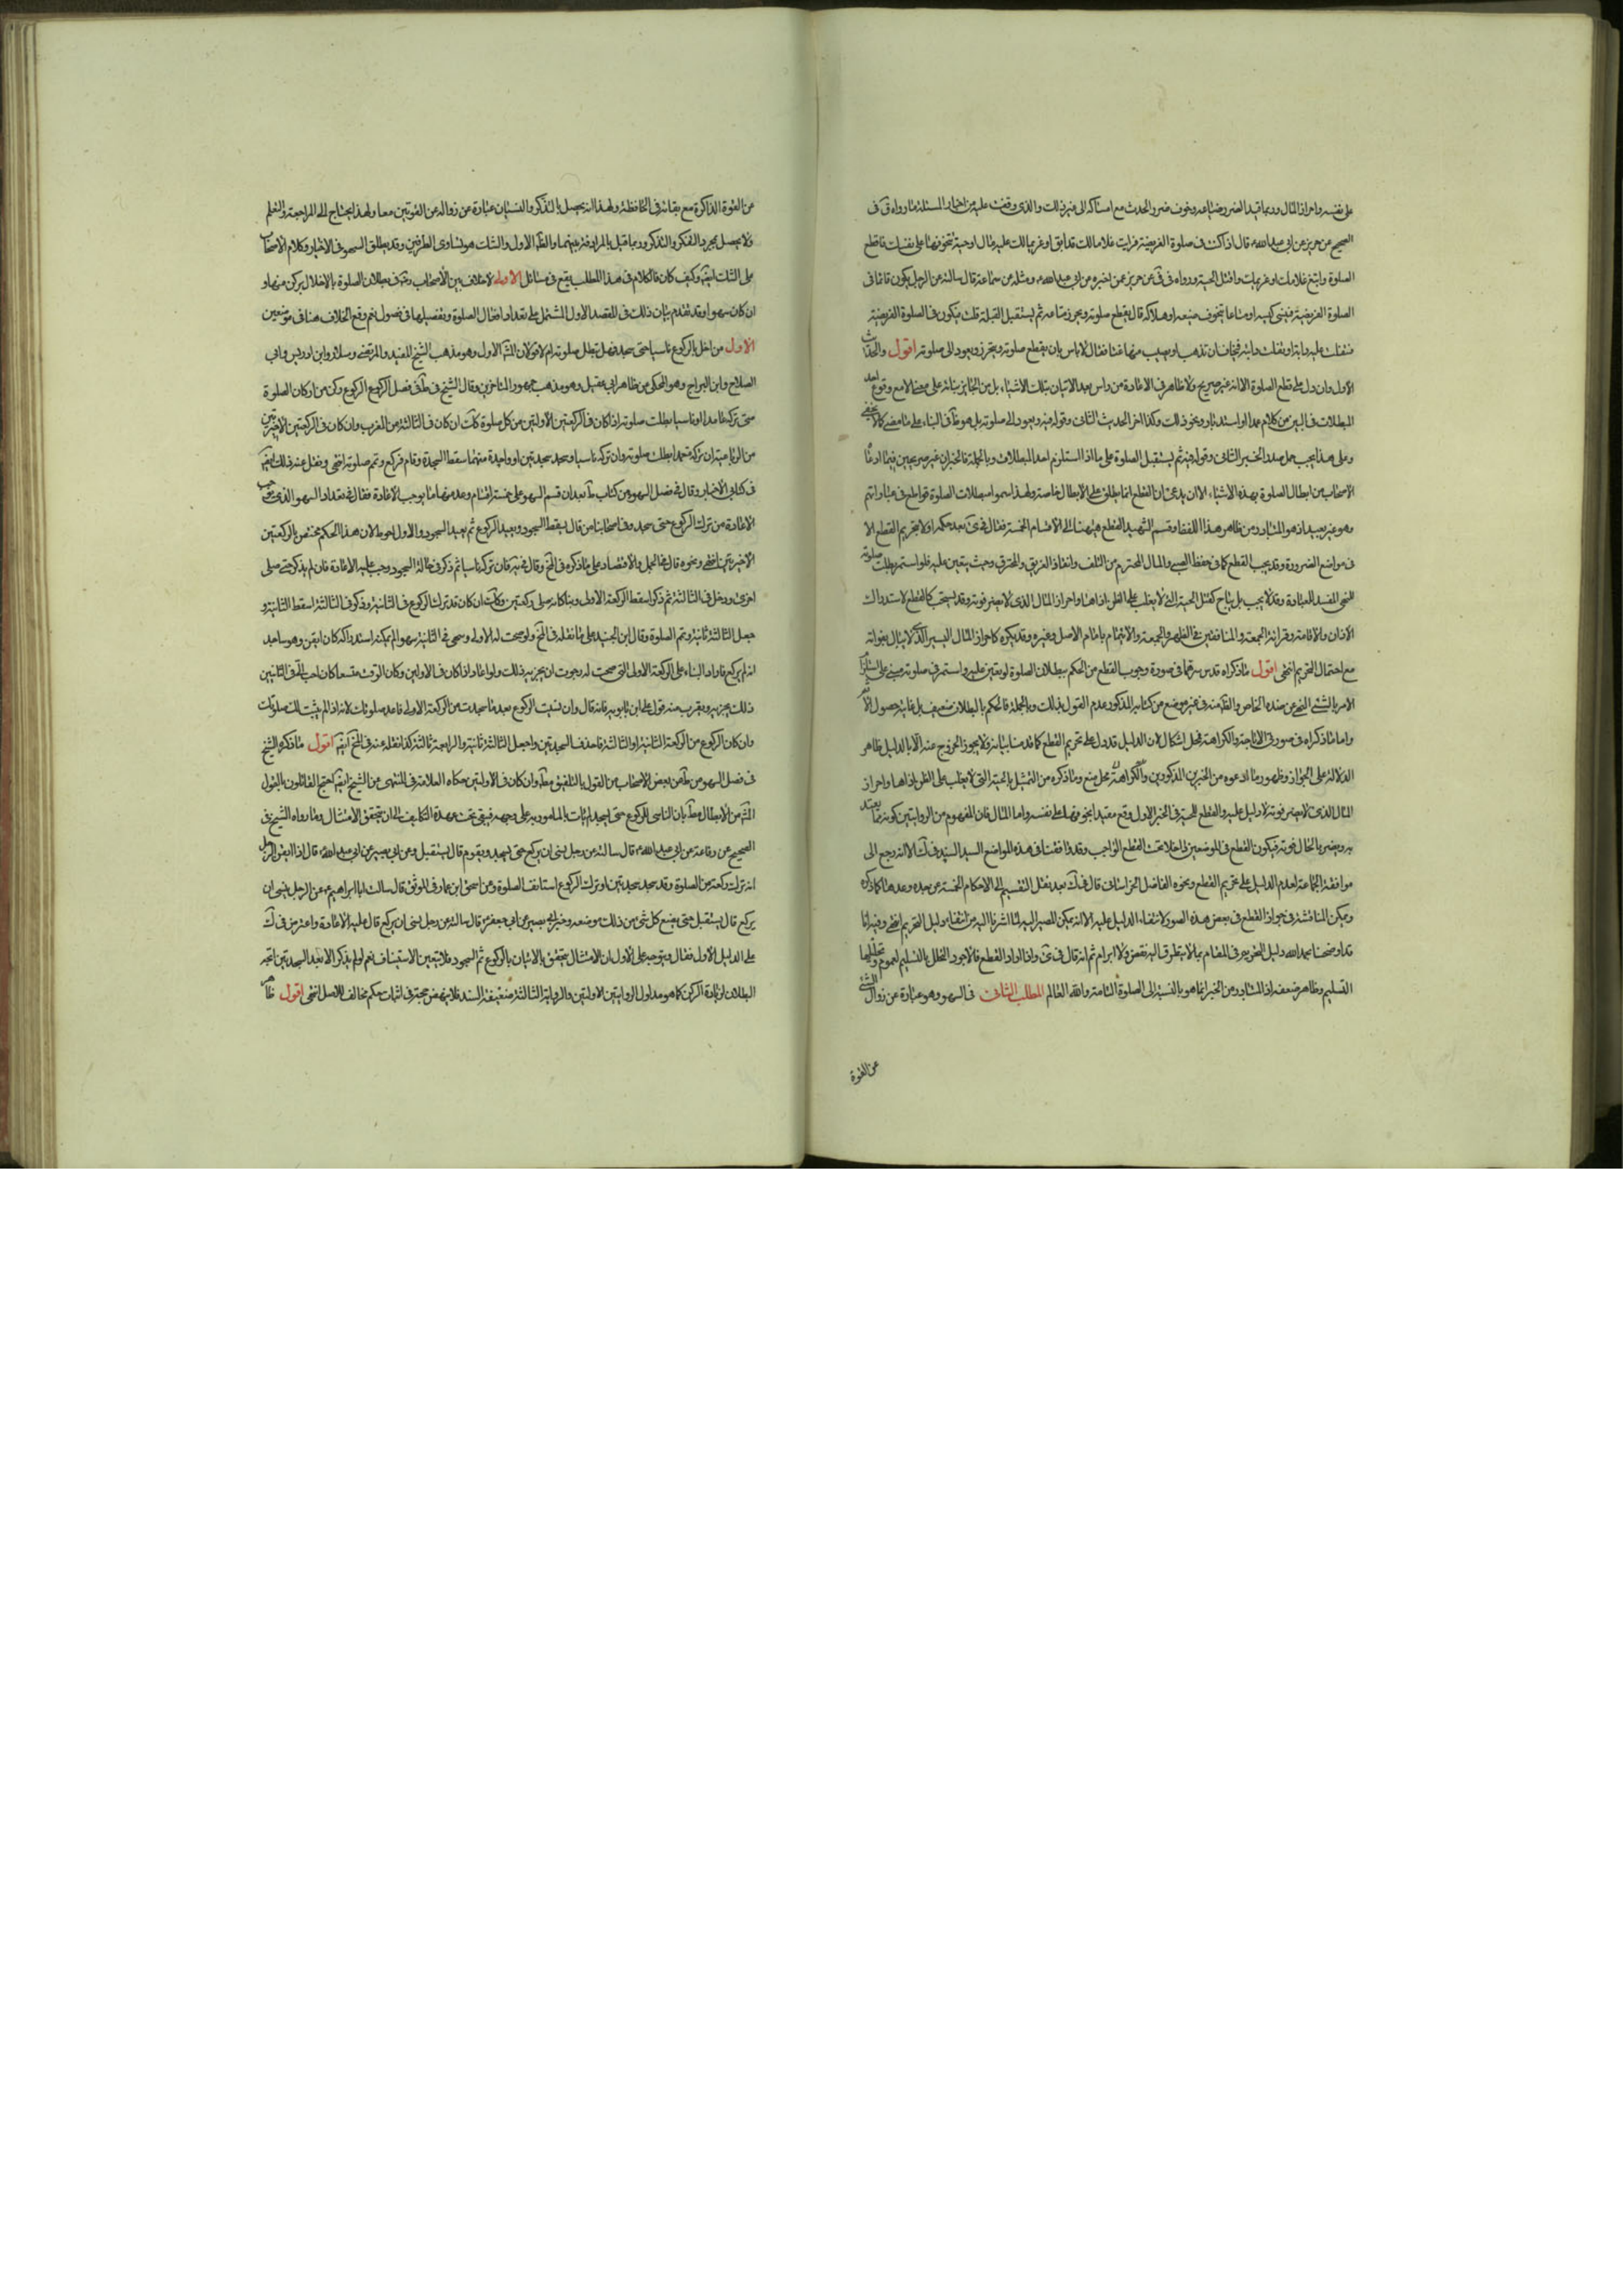 على نفسه واحراز المال وربما قيد الضرر وضياعه وخوف ضرر الحدث مع امساكه الى غير ذلك والذي وقفت عليه من اخبار المسئلة ما رواه في في
الصحيح عن حريز عن ابي عبد الله ع قال اذا كنت في صلوة الفريضة فرايت غلاما لك قد ابق او غريما لك عليه مال او حية تخوفها على نفسك فاقطع
الصلوة واتبع غلامك او غريمك واقتل الحية ورواه في في عن حريز عمن اخبره عن ابي عبد الله ع ومثله عن سماعة قال سالته عن الرجل يكون قائما في
الصلوة الفريضة فينسى كيسه او متاعا يتخوف ضيعه او هلاكه قال يقطع صلوته ويحرز متاعه ثم يستقبل القبلة قلت فيكون في الصلوة الفريضة
فتفلت عليه دابة او تفلت دابته فيخاف ان تذهب او يصيب منها عنتا فقال لا باس بان يقطع صلوته ويتحرز ويعود الى صلوته اقول والحديث
الاول وان دل على قطع الصلوة الا انه غير صريح ولا ظاهر في الاعادة من راس بعد الاتيان بتلك الاشياء بل من الجائز بنائه على ما مضى الا مع وقوع احد
المبطلات في البين من كلام عمدا او استدبار ونحو ذلك وكذا اخر الحديث الثاني وقوله فيه ويعود الى صلوته بل هو ظ في البناء على ما مضى كما لا يخفى
وعلى هذا يجب حمل صدر الخبر الثاني وقوله فيه ثم يستقبل الصلوة على ما اذا استلزم احد المبطلات وبالجملة فالخبران غير صريحين فيما ادعاه
الاصحاب من ابطال الصلوة بهذه الاشياء الا ان يدعى ان القطع انما يطلق على الابطال خاصة ولهذا سموا مبطلات الصلوة قواطع في عباراتهم
وهو غير بعيد اذ هو المتبادر من ظاهر هذا اللفظ وقسم الشهيد القطع هيهنا الى الاقسام الخمسة فقال في ى بعد حكمه اولا بتحريم القطع الا
في مواضع الضرورة وقد يجب القطع كما في حفظ الصبي والمال المحترم من التلف وانقاذ الغريق والمحترق وحيث يتعين عليه فلو استمر بطلت صلوته
للنهي المفسد للعبادة وقد لا يجب بل يباح كقتل الحية التي لا يغلب على الظن اذاها واحراز المال الذي لا يضر فوته وقد يستحب كالقطع لاستدراك
الاذان والاقامة وقرائة الجمعة والمنافقين في الظهر والجمعة والايتمام بامام الاصل وغيره وقد يكره كاحراز المال اليسير الذي لا يبالي بفواته
مع احتمال التحريم انتهى اقول ما ذكراه قدس سرهما في صورة وجوب القطع من الحكم ببطلان الصلوة لو تعين عليه واستمر في صلوته مبني على استلزام
الامر بالشئ النهي عن ضده الخاص
واما ما ذكراه في صورتي الاباحة والكراهة فمحل اشكال لان الدليل قد دل على تحريم القطع كما قدمنا بيانه فلا يجوز الخروج عنه الا بالدليل ظاهر
الدلالة على الجواز وظهور ما ادعوه من الخبرين المذكورين والكراهة محل منع وما ذكره من التمثيل بالحية التي لا يغلب على الظن اذاها واحراز
المال الذي لا يضر فوته لا دليل عليه والقطع للحية في الخبر الاول وقع مقيدا بخوفها على نفسه واما المال فان المفهوم من الروايتين كونه مما يعتد
به ويضر بالحال فوته فيكون القطع في الموضعين داخلا تحت القطع الواجب وقد وافقنا في هذه المواضع السيد السند في ك الا انه رجع الى
موافقة الجماعة لعدم الدليل على تحريم القطع ونحوه الفاضل الخراساني قال في ك بعد نقل التقسيم الى الاحكام الخمسة عن جده وعدها كما ذكره
ويمكن المناقشة في جواز القطع في بعض هذه الصور لانتفاء الدليل عليه الا انه يمكن المصير اليه لما اشرنا اليه من انتفاء دليل التحريم انتهى وفيه انا
قد اوضحنا بحمد الله دليل التحريم في المقام بما لا يتطرق اليه نقض ولا ابرام ثم انه قال في ى واذا اراد القطع فالاجود التحلل بالتسليم لعموم وتحليلها
التسليم وظاهره ضعفه اذ المتبادر من الخبر انما هو بالنسبة الى الصلوة التامة والله العالم المطلب الثاني في السهو وهو عبارة عن زوال الشئ
عن القوة
عن القوة الذاكرة مع بقائه في الحافظة ولهذا انه يحصل بالتذكر والنسيان عبارة عن زواله عن القوتين معا ولهذا يحتاج الى المراجعة والتعلم
ولا يحصل بمجرد الفكر والتذكر وربما قيل بالمرادفة بينهما والظ الاول والشك هو تساوي الطرفين وقد يطلق السهو في الاخبار وكلام الاصحاب
على الشك ايض وكيف كان فالكلام في هذا المطلب يقع في مسائل الاولى لا خلاف بين الاصحاب رض في بطلان الصلوة بالاخلال بركن منها و
ان كان سهوا وقد تقدم بيان ذلك في المقصد الاول المشتمل على تعداد افعال الصلوة وتفصيلها في فصول نعم وقع الخلاف هنا في موضعين
الاول من اخل بالركوع ناسيا حتى سجد فهل تبطل صلوته ام لا قولان المش الاول وهو مذهب الشيخ المفيد والمرتضى وسلار وابن ادريس وابي
الصلاح وابن البراج وهو المحكي عن ظاهر ابن ابي عقيل وهو مذهب جمهور المتاخرين وقال الشيخ في ط في فصل الركوع الركوع ركن من اركان الصلوة
متى تركه عامدا او ناسيا بطلت صلوته اذا كان في الركعتين الاولتين من كل صلوة وكك ان كان في الثالثة من المغرب وان كان في الركعتين الاخيرتين
من الرباعية ان تركه متعمدا بطلت صلوته وان تركه ناسيا وسجد سجدتين او واحدة منهما اسقط السجدة وقام فركع وتمم صلوته انتهى ونقل عنه ذلك ايض
في كتابي الاخبار وقال في فصل السهو من كتاب ط بعد ان قسم السهو على خمسة اقسام وعد منها ما يوجب الاعادة فقال في تعداد السهو الذي يوجب
الاعادة من ترك الركوع حتى سجد وفي اصحابنا من قال يسقط السجود ويعيد الركوع ثم يعيد السجود والاول احوط لان هذا الحكم مختص بالركعتين
الاخيرتين انتهى ونحوه قال في الجمل والاقتصاد على ما ذكره في الخ وقال في يه فان تركه ناسيا ثم ذكر في حالة السجود وجب عليه الاعادة فان لم يذكر حتى صلى
اخرى ودخل في الثالثة ثم ذكر اسقط الركعة الاولى وبنا كانه صلى ركعتين وكك ان كان قد ترك الركوع في الثانية وذكر في الثالثة اسقط الثانية و
جعل الثالثة ثانية وتمم الصلوة وقال ابن الجنيد على ما نقله في الخ ولو صحت له الاولى وسهى في الثانية سهوا لم يمكنه استدراكه كان ايقن وهو ساجد
انه لم يركع فاراد البناء على الركعة الاولى التي صحت له رجوت ان يجزيه ذلك ولو اعاد اذا كان في الاولين وكان الوقت متسعا كان احب الي وفي الثانيتين
ذلك يجزيه ويقرب منه قول علي ابن بابويه فانه قال وان نسيت الركوع بعد ما سجدت من الركعة الاولى فاعد صلوتك لانه اذا لم يثبت لك صلوتك
وان كان الركوع من الركعة الثانية او الثالثة فاحذف السجدتين واجعل الثالثة ثانية والرابعة ثالثة كذا نقله عنه في الخ ايض اقول ما ذكره الشيخ
في فصل السهو من ط عن بعض الاصحاب من القول بالتلفيق مط وان كان في الاولتين حكاه العلامة في المنتهى عن الشيخ ايض احتج القائلون بالقول
المش من الابطال مط بان الناسي للركوع حتى سجد لم يات بالمامور به على وجهه فيبقى تحت عهدة التكليف الى ان يتحقق الامتثال وما رواه الشيخ في
الصحيح عن رفاعة عن ابي عبد الله ع قال سالته عن رجل نسى ان يركع حتى يسجد ويقوم قال يستقبل وعن ابي بصير عن ابي عبد الله ع قال اذا ايقن الرجل
انه ترك ركعة من الصلوة وقد سجد سجدتين وترك الركوع استانف الصلوة وعن اسحق ابن عمار في الموثق قال سالت ابا ابراهيم ع عن الرجل ينسى ان
يركع قال يستقبل حتى يضع كل شئ من ذلك موضعه وخبر ابي بصير عن ابي جعفر ع قال سالته عن رجل نسى ان يركع قال عليه الاعادة واعترض في ك
على الدليل الاول فقال ويتوجه على الاول ان الامتثال يتحقق بالاتيان بالركوع ثم السجود فلا يتعين الاستيناف نعم لو لم يذكر الا بعد السجدتين اتجه
البطلان لزيادة الركن كما هو مدلول الروايتين الاولتين والرواية الثالثة ضعيفة السند فلا ينهض حجة في اثبات حكم مخالف للاصل انتهى اقول ظ